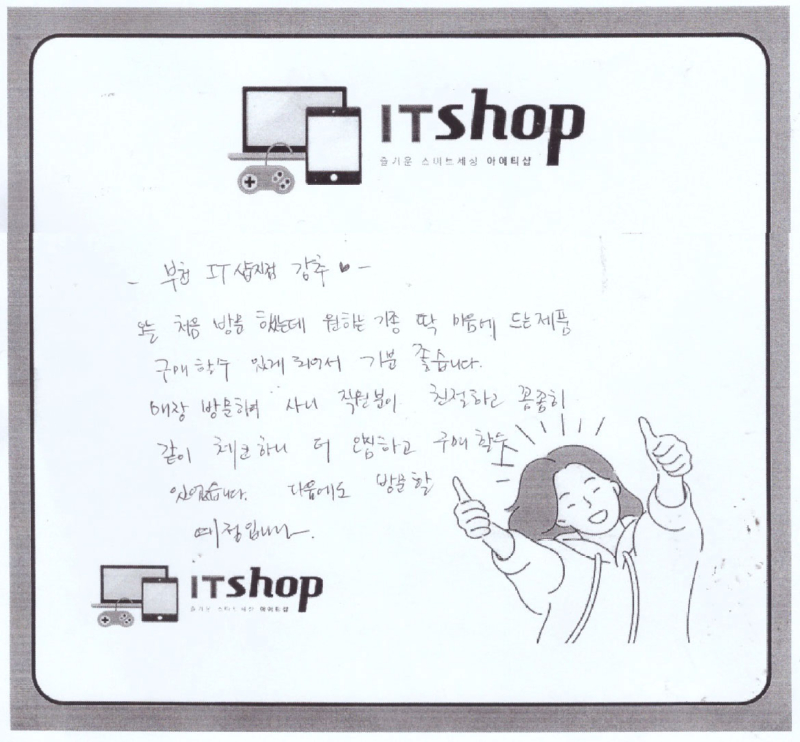 ITshop
즐거운 스마트세상 아이티샵
- 부천 IT샵지점 강추 ♥ -
오늘 처음 방문 했는데 원하는 기종 딱 마음에 드는제품
구매할수 있게 되어서 기분 좋습니다.
매장 방문하여 사니 직원분이 친절하고 꼼꼼히
같이 체크하니 더 안심하고 구매 할수
있었습니다. 다음에도 방문할
예정입니다.
ITshop
즐거운 스마트세상 아이티샵